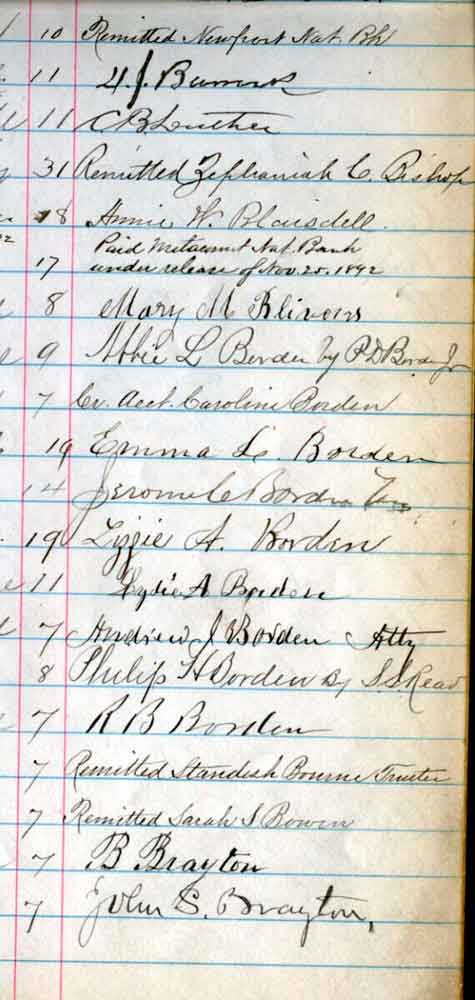 10 Remitted Newport Nat. Bk
11 J.
11 C B Luther
31 Remitted Zephaniah C. Bishop
18 Annie W. Blaisdell.
Paid Metacomet Nat. Bank
17 under release of Nov. 25. 1892
8 Mary M Blivens
9 Abbie L Borden by P D Borden Jr
7 Cr. Acct. Caroline Borden
19 Emma L. Borden
14 Jerome C Borden
19 Lizzie A. Borden
11 Lydia A Borden
7 Andrew J Borden Atty
8 Philip H Borden By S. Read
7 R B Borden
7 Remitted Standish Bourne Trustee
7 Remitted Sarah S Bowen
7 B Brayton
7 John S. Brayton,